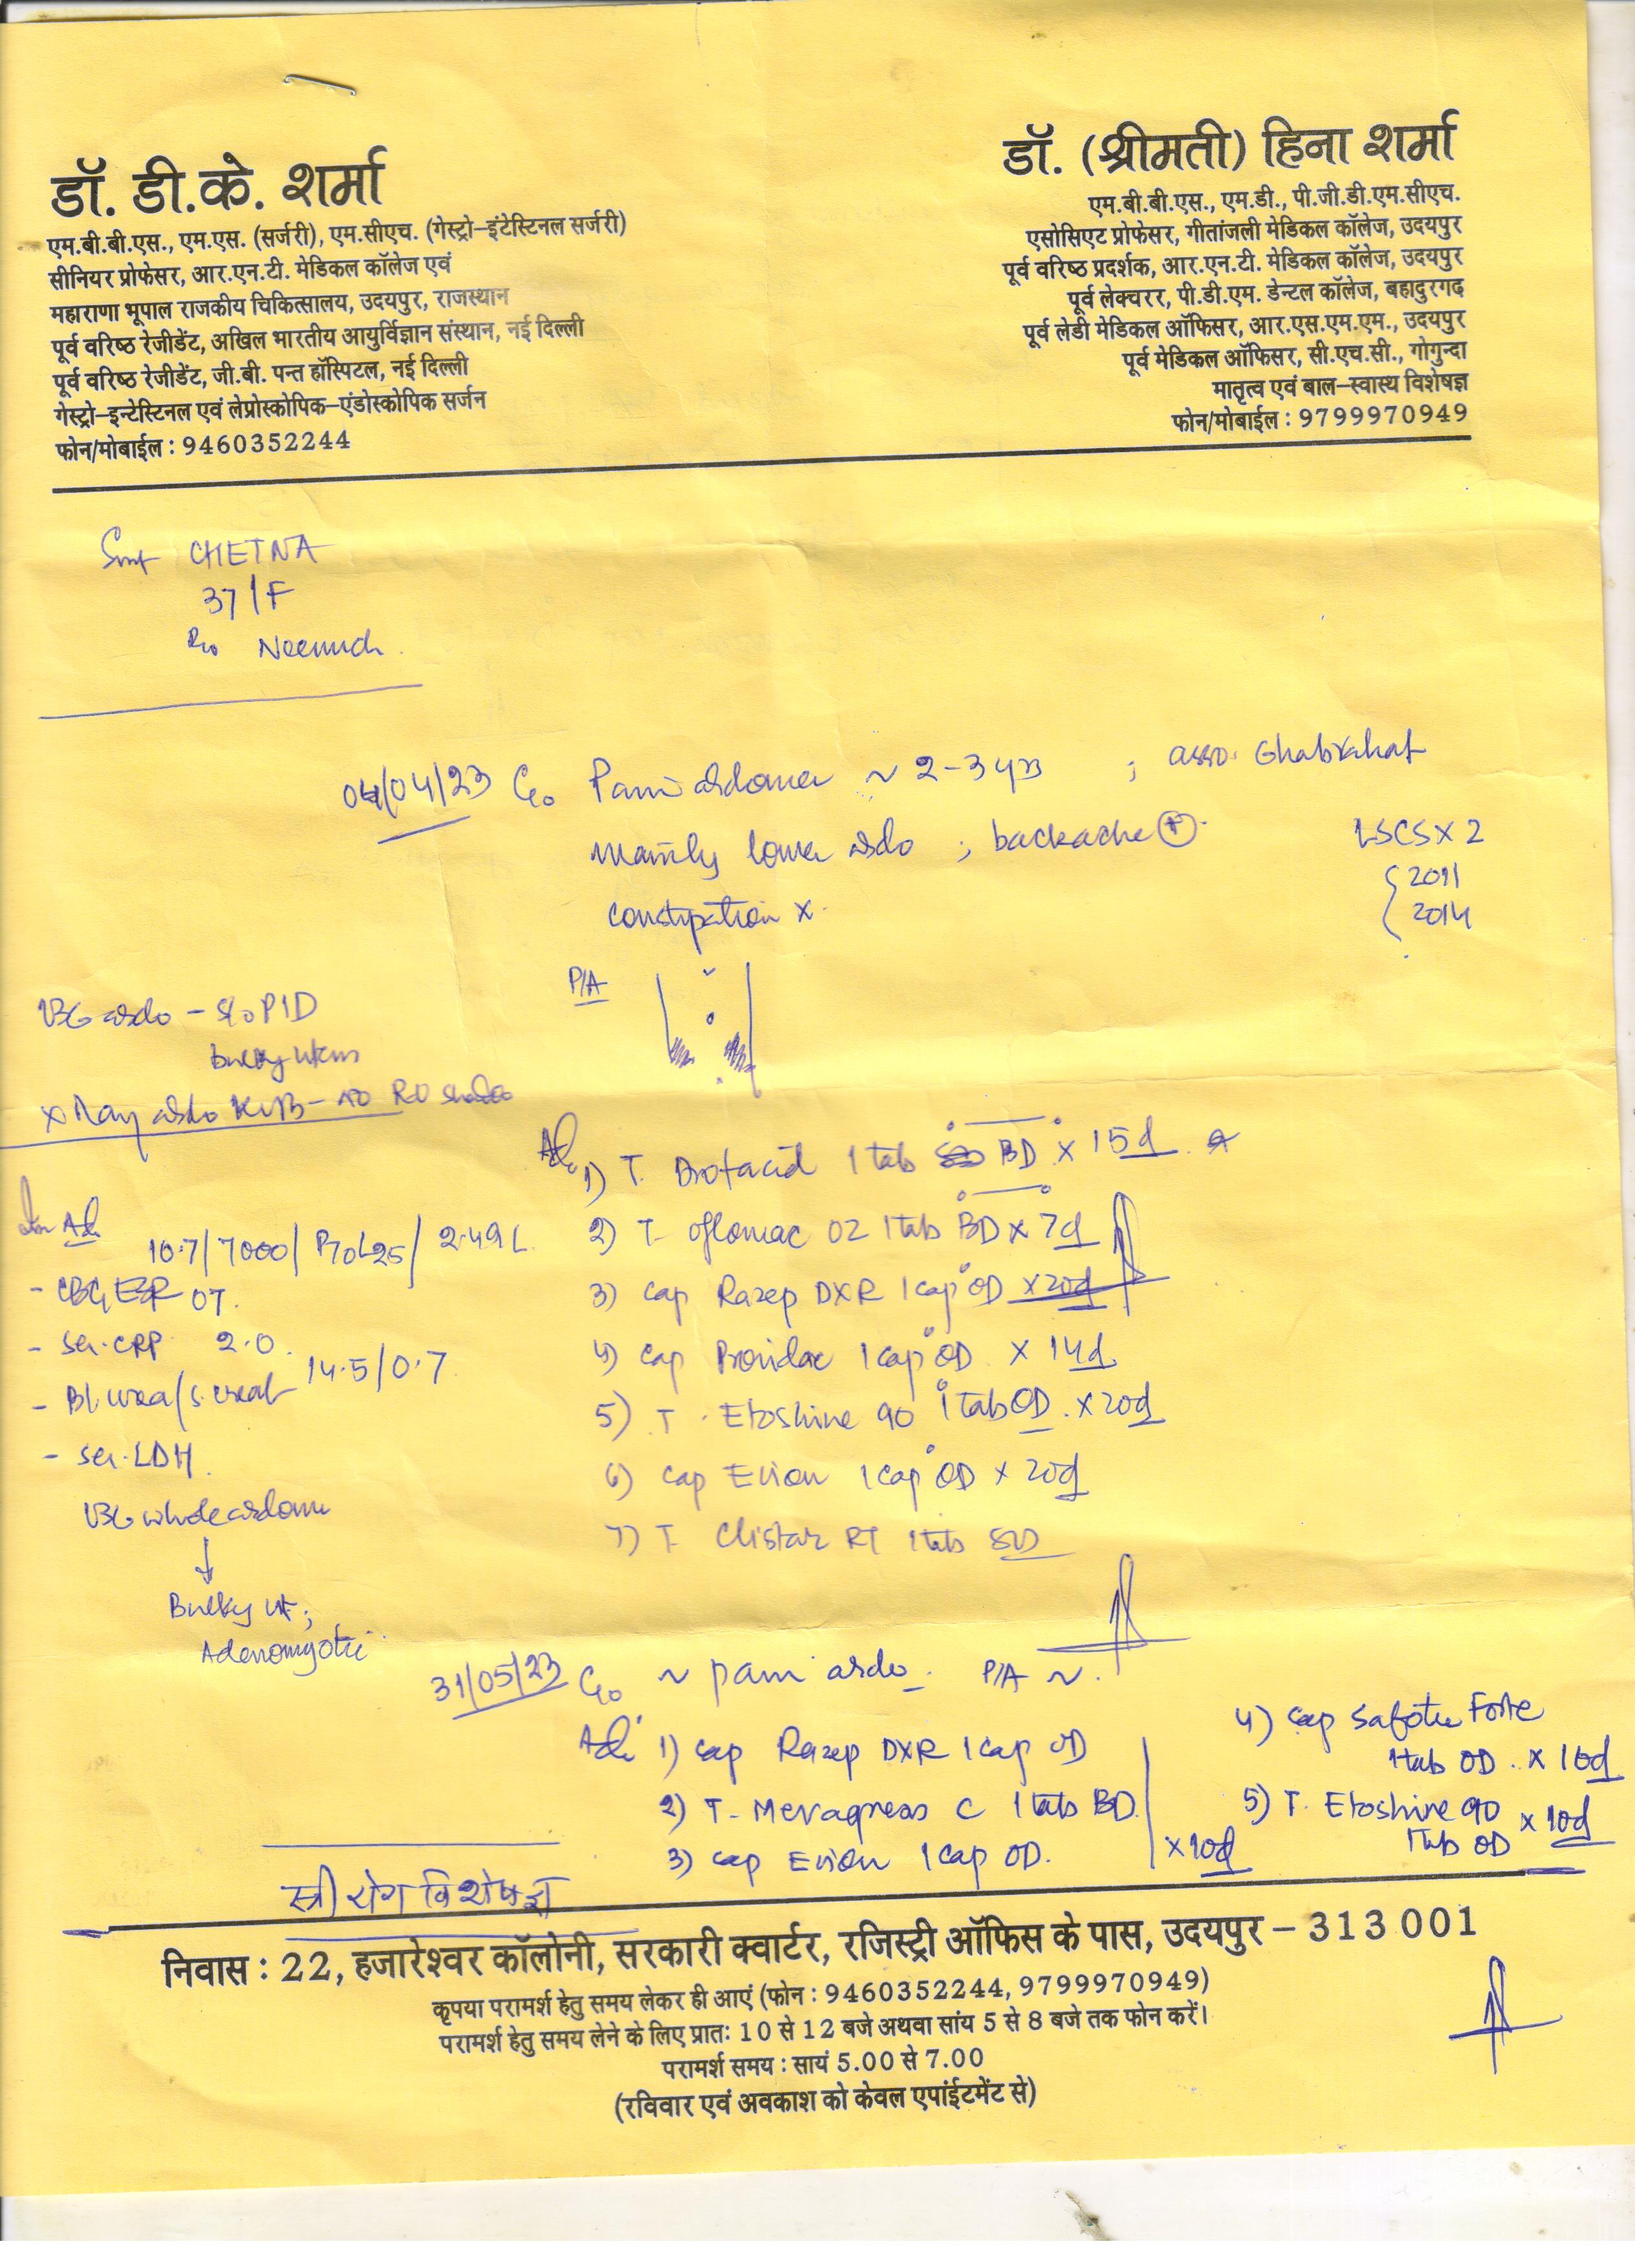 डॉ. डी.के. शर्मा
एम.बी.बी.एस., एम.एस. (सर्जरी), एम.सीएच. (गेस्ट्रो–इंटेस्टिनल सर्जरी)
सीनियर प्रोफेसर, आर.एन.टी. मेडिकल कॉलेज एवं
महाराणा भूपाल राजकीय चिकित्सालय, उदयपुर, राजस्थान
पूर्व वरिष्ठ रेजीडेंट, अखिल भारतीय आयुर्विज्ञान संस्थान, नई दिल्ली
पूर्व वरिष्ठ रेजीडेंट, जी.बी. पन्त हॉस्पिटल, नई दिल्ली
गेस्ट्रो–इन्टेस्टिनल एवं लेप्रोस्कोपिक–एंडोस्कोपिक सर्जन
फोन/मोबाईल : 9460352244
डॉ. (श्रीमती) हिना शर्मा
एम.बी.बी.एस., एम.डी., पी.जी.डी.एम.सीएच.
एसोसिएट प्रोफेसर, गीतांजली मेडिकल कॉलेज, उदयपुर
पूर्व वरिष्ठ प्रदर्शक, आर.एन.टी. मेडिकल कॉलेज, उदयपुर
पूर्व लेक्चरर, पी.डी.एम. डेन्टल कॉलेज, बहादुरगढ़
पूर्व लेडी मेडिकल ऑफिसर, आर.एस.एम.एम., उदयपुर
पूर्व मेडिकल ऑफिसर, सी.एच.सी., गोगुन्दा
मातृत्व एवं बाल–स्वास्थ विशेषज्ञ
फोन/मोबाईल : 9799970949
Smt CHETNA
37/F
R/o Neemuch
04/04/23 C/o Pain abdomen ~ 2-3 yrs ; asso. Ghabrahat
Mainly lower abdo ; backache (+)
LSCS x 2
constipation x
2011
2014
P/A
USG abdo - s/o PID
bulky uterus
x Ray abdo KUB - no RO shadow
Adv
1) T. Drotacid 1 tab BD x 15d
2) T. Oflomac OZ 1 tab BD x 7d
3) Cap Razep DXR 1 cap OD x 20d
4) Cap Providac 1 cap OD x 14d
5) T. Etoshine 90 1 tab OD x 20d
6) Cap Evion 1 cap OD x 20d
7) T. Clistar RT 1 tab
Adv
10.7/7000/ / 2.49 L
- CBC, ESR 07
- Ser. CRP 2.0
- Bl. urea/s. creat 14.5/0.7
- Ser. LDH
USG whole abdomen
Bulky ut;
Adenomyotic
31/05/23 C/o ~ pain abdo. P/A ~
Adv 1) Cap Razep DXR 1 cap OD
2) T. Mevagress C 1 tab BD
3) Cap Evion 1 cap OD.
x 10d
4) Cap Safotie Forte
1 tab OD x 10d
5) T. Etoshine 90 x 10d
1 tab OD
स्त्री रोग विशेषज्ञ
निवास : 22, हजारेश्वर कॉलोनी, सरकारी क्वार्टर, रजिस्ट्री ऑफिस के पास, उदयपुर – 313 001
कृपया परामर्श हेतु समय लेकर ही आएं (फोन : 9460352244, 9799970949)
परामर्श हेतु समय लेने के लिए प्रातः 10 से 12 बजे अथवा सांय 5 से 8 बजे तक फोन करें।
परामर्श समय : सायं 5.00 से 7.00
(रविवार एवं अवकाश को केवल एपांईटमेंट से)